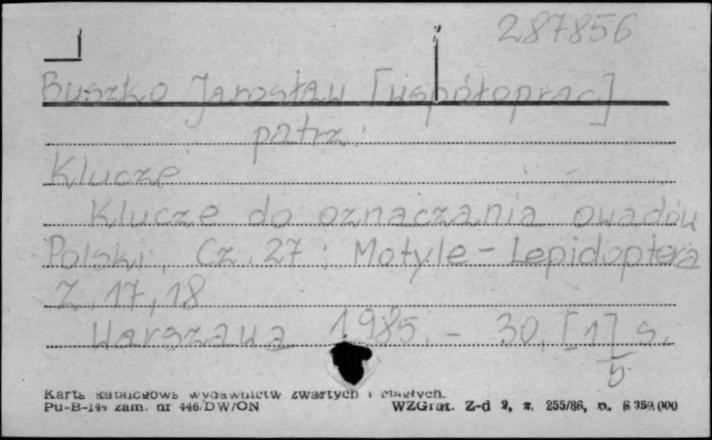 287856
Buszko Jarosław [współoprac]
patrz:
Klucze
Klucze do oznaczania owadów
Polski. Cz. 27 : Motyle - Lepidoptera
Z. 17, 18
Warszawa 1985. - 30, [1] s.
5
Karta katalogowa wydawnictw zwartych i ciągłych.
Pu-B-144 zam. nr 446/DW/ON WZGraf. Z-d 2, z. 255/86, n.